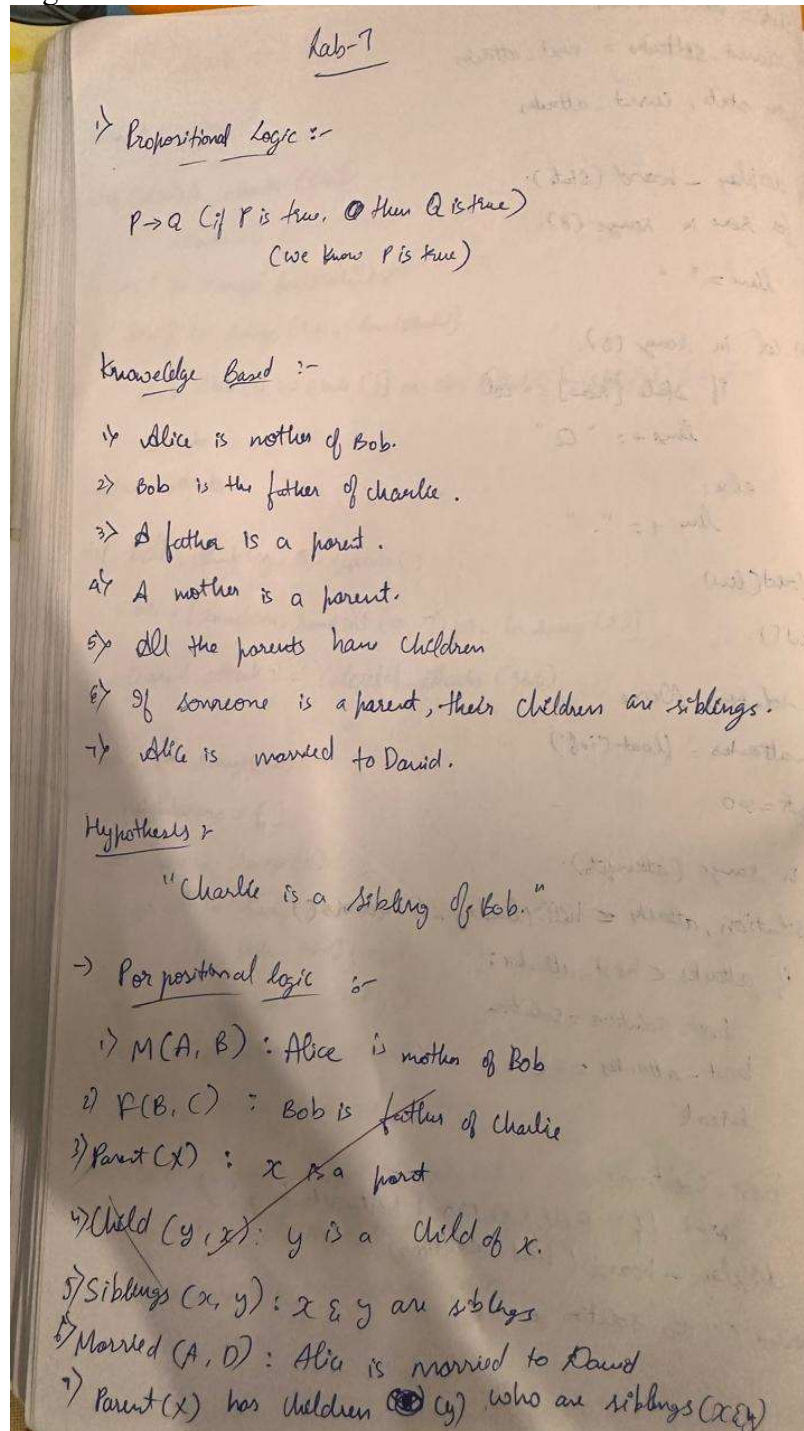 Lab-7
1) Propositional Logic :-
P→Q (if P is true, then Q is true)
(we know P is true)
Knowelelge Based :-
1) Alice is mother of Bob.
2) Bob is the father of charlie.
3) A father is a parent.
4) A mother is a parent.
5) All the parents have children
6) If someone is a parent, their children are siblings.
7) Alice is married to David.
Hypothesis :-
"Charlie is a sibling of Bob."
→ Porpositional logic :-
1) M(A, B) : Alice is mother of Bob
2) F(B, C) : Bob is father of Charlie
3) Parent (X) : x is a part
4) Child (y, x) : y is a child of x.
5) Siblings (x, y) : x & y are siblings
6) Married (A, D) : Alice is married to David
7) Parent (x) has children (y) who are siblings (x&y)